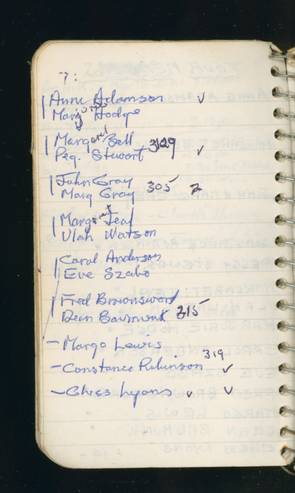 7:
Anne Adamson ✓
Marj Hodge
Margaret Bell 3129
Peg. Stewart ✓
John Gray 305 2
Mary Gray
Marg
Watson
Carol Anderson
Eve Szabo
Fred Brownsword
Dean 315
– Margo Lewis
– Constance Robinson 319 ✓
– Chess Lyons ✓ ✓